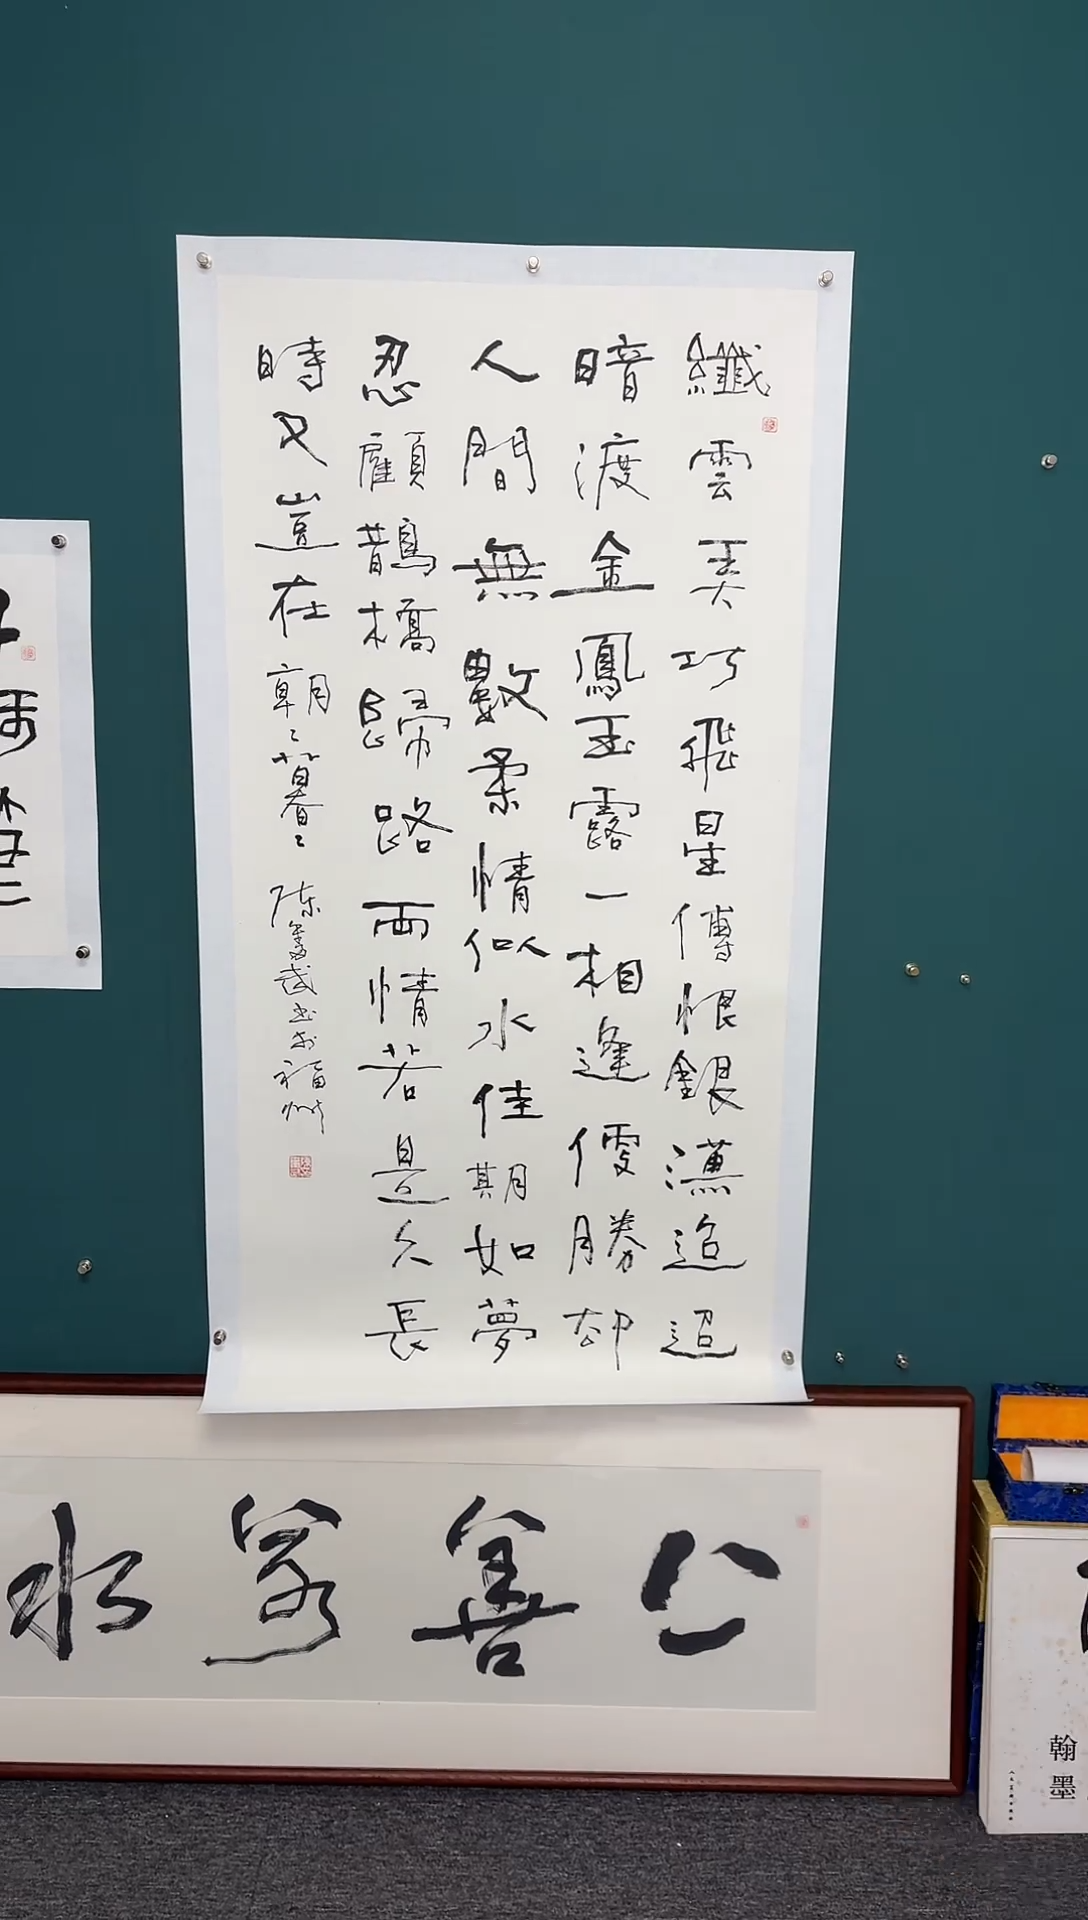 纖雲弄巧飛星傳恨銀漢迢迢
暗渡金鳳玉露一相逢便勝却
人間無數柔情似水佳期如夢
忍顧鵲橋歸路兩情若是久長
時又豈在朝〻暮〻
陳奮武书於福州
上善若水
翰墨